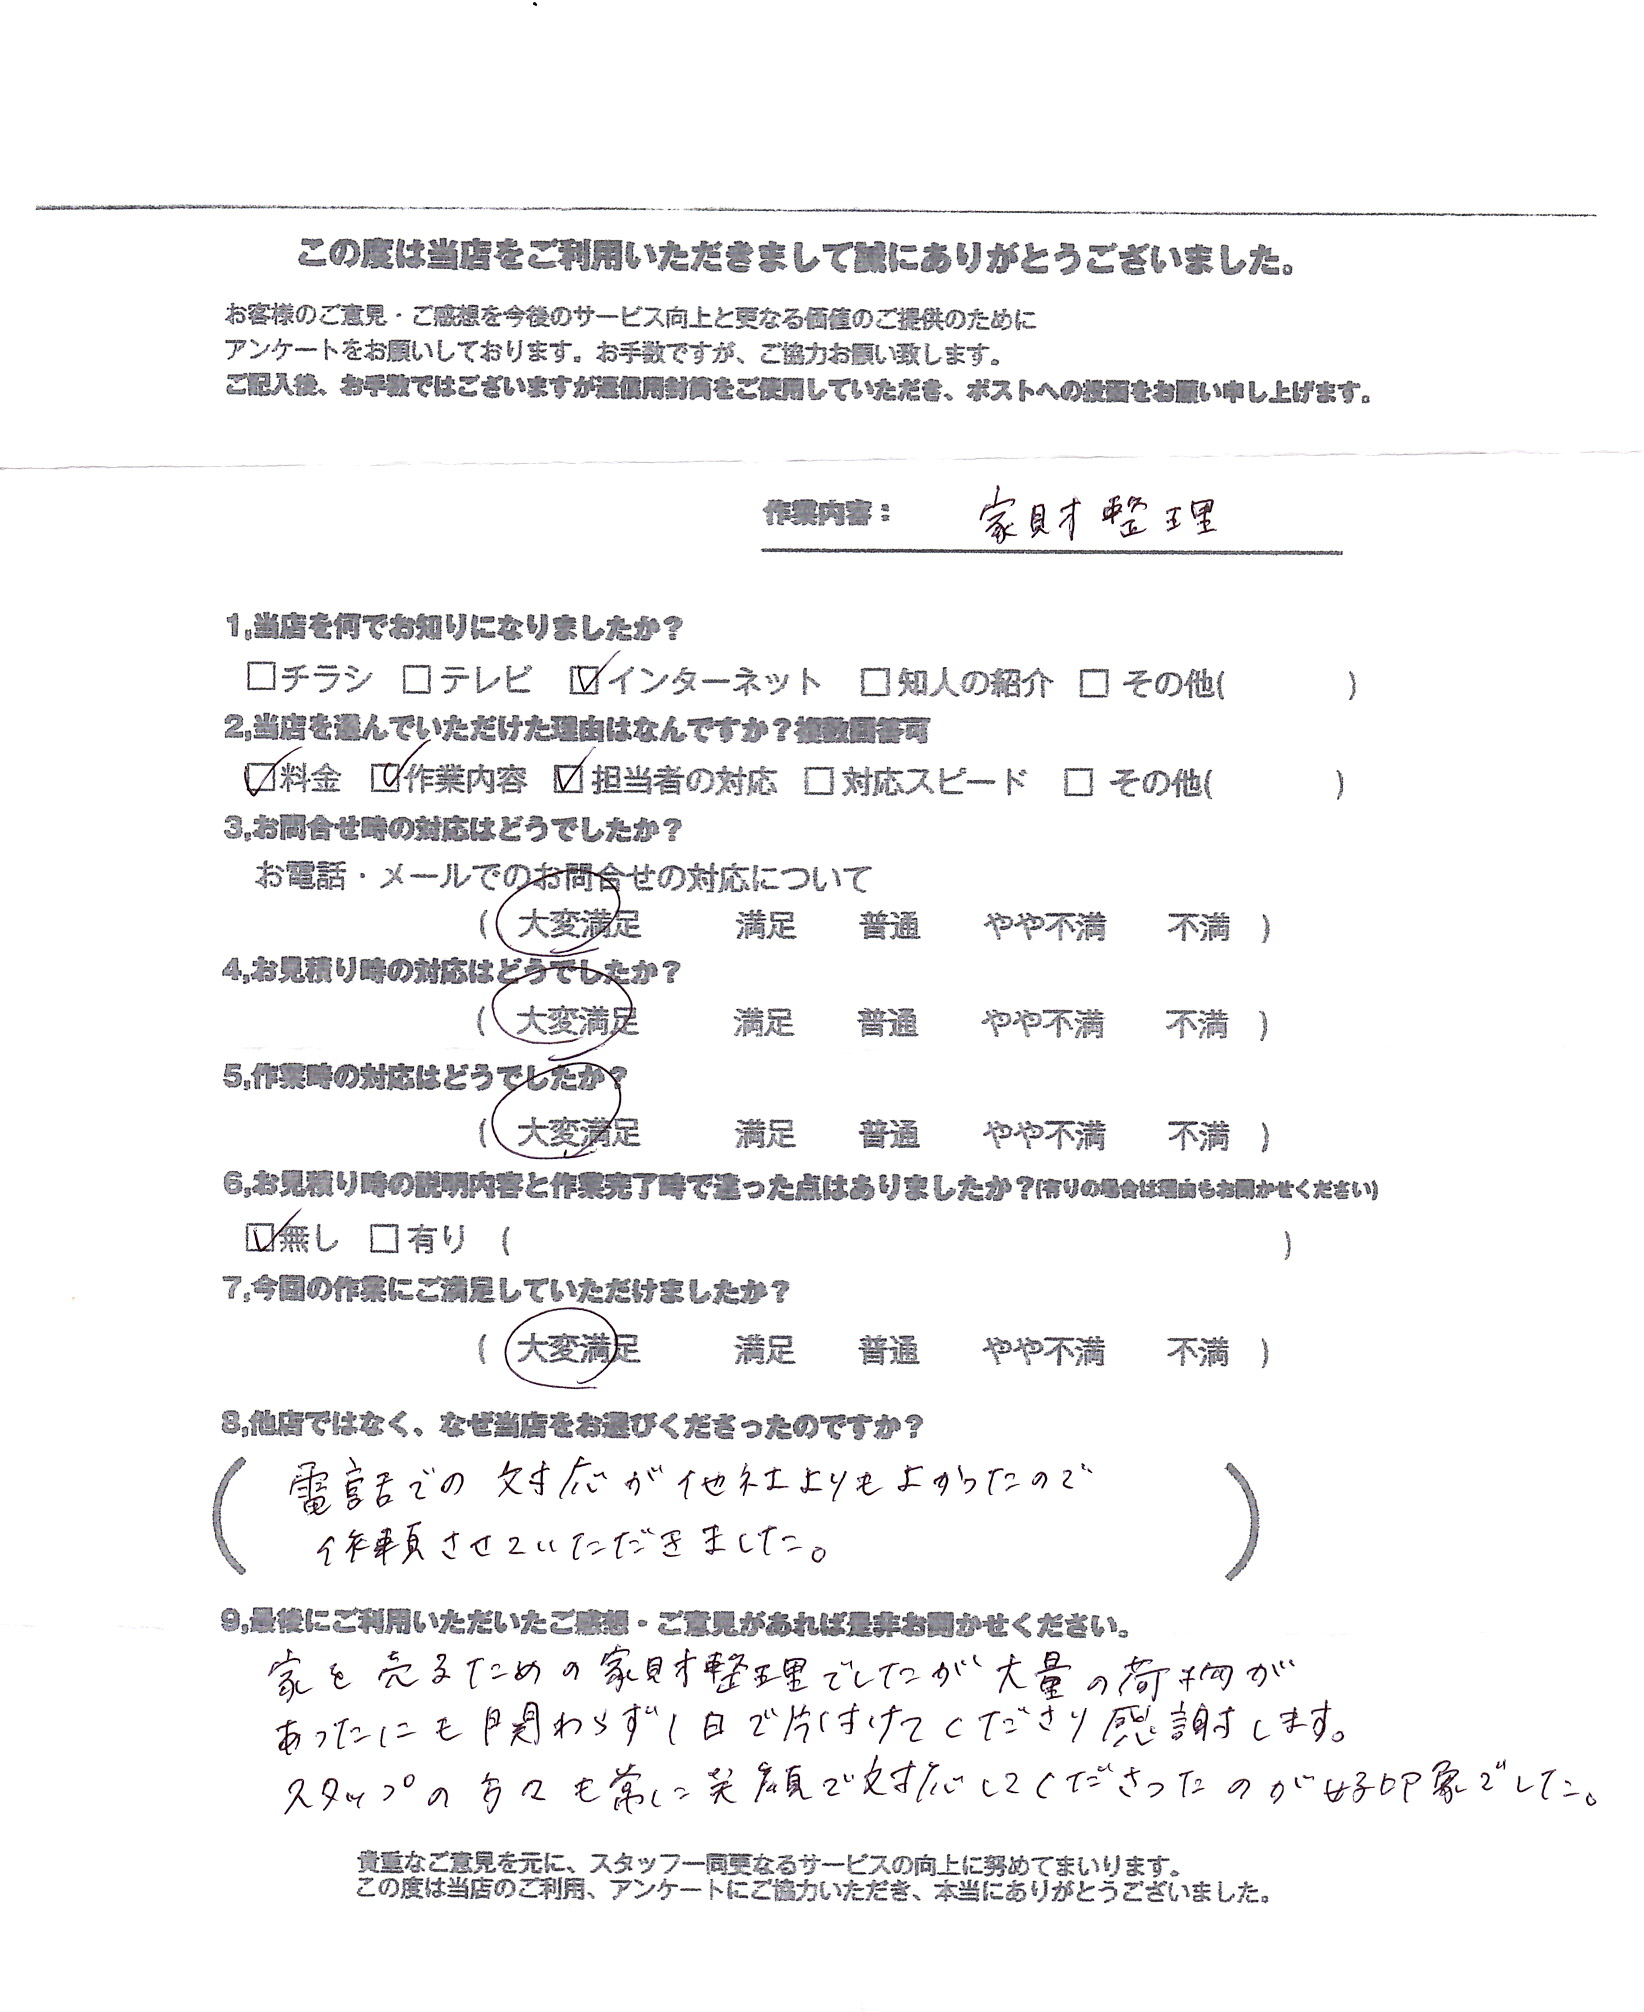 この度は当店をご利用いただきまして誠にありがとうございました。
お客様のご意見・ご感想を今後のサービス向上と更なる価値のご提供のために
アンケートをお願いしております。お手数ですが、ご協力お願い致します。
ご記入後、お手数ではございますが返信用封筒をご使用していただき、ポストへの投函をお願い申し上げます。
作業内容： 家財整理
1,当店を何でお知りになりましたか？
□チラシ □テレビ ☑インターネット □知人の紹介 □ その他( )
2,当店を選んでいただけた理由はなんですか？複数回答可
☑料金 ☑作業内容 ☑担当者の対応 □対応スピード □ その他( )
3,お問合せ時の対応はどうでしたか？
お電話・メールでのお問合せの対応について
( 大変満足 満足 普通 やや不満 不満 )
4,お見積り時の対応はどうでしたか？
( 大変満足 満足 普通 やや不満 不満 )
5,作業時の対応はどうでしたか？
( 大変満足 満足 普通 やや不満 不満 )
6,お見積り時の説明内容と作業完了時で違った点はありましたか？(有りの場合は理由もお聞かせください)
☑無し □有り ( )
7,今回の作業にご満足していただけましたか？
( 大変満足 満足 普通 やや不満 不満 )
8,他店ではなく、なぜ当店をお選びくださったのですか？
電話での対応が他社よりもよかったので
依頼させていただきました。
9,最後にご利用いただいたご感想・ご意見があれば是非お聞かせください。
家を売るための家財整理でしたが大量の荷物が
あったにも関わらず1日で片付けてくださり感謝します。
スタッフの方々も常に笑顔で対応してくださったのが好印象でした。
貴重なご意見を元に、スタッフ一同更なるサービスの向上に努めてまいります。
この度は当店のご利用、アンケートにご協力いただき、本当にありがとうございました。